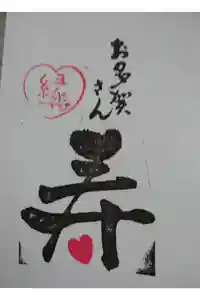 お多賀
さん
寿